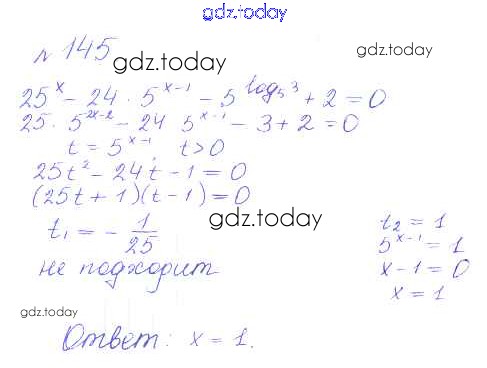 gdz.today
№ 145
gdz.today
gdz.today
25^x - 24 · 5^{x-1} - 5^{log_5 3} + 2 = 0
25 · 5^{2x-2} - 24 5^{x-1} - 3 + 2 = 0
t = 5^{x-1}, t > 0
gdz.today
25t² - 24t - 1 = 0
(25t + 1)(t - 1) = 0
gdz.today
t₁ = - 1/25
не подходит
t₂ = 1
5^{x-1} = 1
x - 1 = 0
x = 1
gdz.today
gdz.today
Ответ: x = 1.
gdz.today